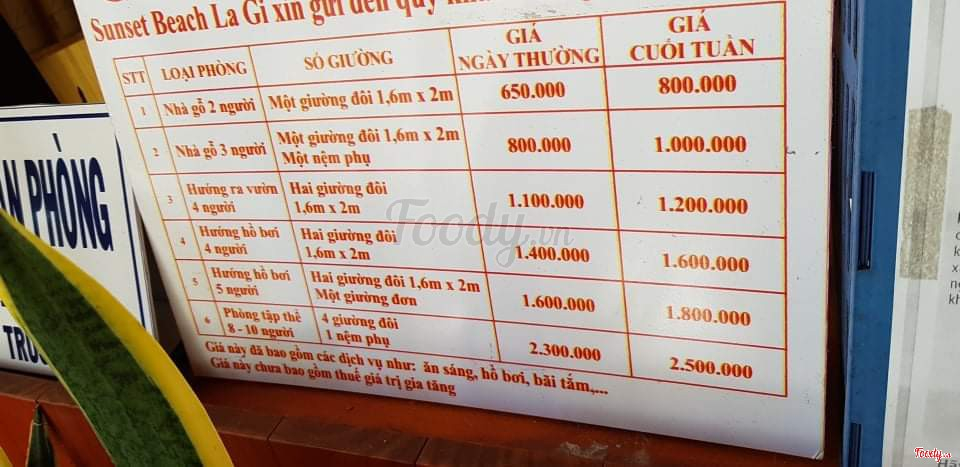 Sunset Beach La Gi xin gửi đến quý
STT LOẠI PHÒNG SỐ GIƯỜNG GIÁ NGÀY THƯỜNG GIÁ CUỐI TUẦN
1 Nhà gỗ 2 người Một giường đôi 1,6m x 2m 650.000 800.000
2 Nhà gỗ 3 người Một giường đôi 1,6m x 2m
Một nệm phụ 800.000 1.000.000
3 Hướng ra vườn
4 người Hai giường đôi
1,6m x 2m 1.100.000 1.200.000
4 Hướng hồ bơi
4 người Hai giường đôi
1,6m x 2m 1.400.000 1.600.000
5 Hướng hồ bơi
5 người Hai giường đôi 1,6m x 2m
Một giường đơn 1.600.000 1.800.000
6 Phòng tập thể
8 - 10 người 4 giường đôi
1 nệm phụ 2.300.000 2.500.000
Giá này đã bao gồm các dịch vụ như: ăn sáng, hồ bơi, bãi tắm,...
Giá này chưa bao gồm thuế giá trị gia tăng
PHÒNG
Foody.vn
Foody.vn